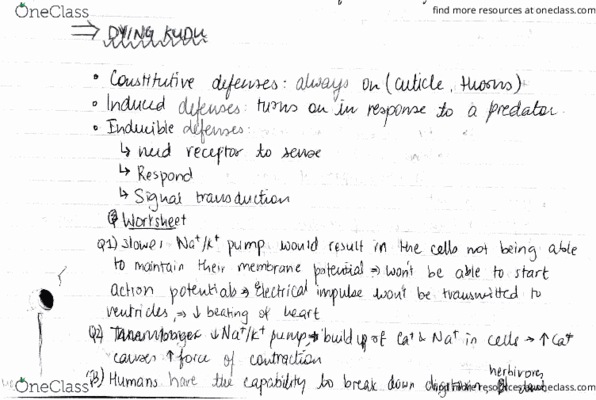 OneClass
find more resources at oneclass.com
⇒ DYING KUDU
• Constitutive defenses: always on (cuticle, thorns)
• Induced defenses: turns on in response to a predator.
• Inducible defenses:
↳ need receptor to sense
↳ Respond
↳ Signal transduction
Worksheet
Q1) Slower Na⁺/K⁺ pump would result in the cells not being able
to maintain their membrane potential ⇒ won't be able to start
action potentials ⇒ Electrical impulse won't be transmitted to
ventricles, ⇒ ↓ beating of heart
Q2) ↓ Na⁺/K⁺ pump, → build up of Ca⁺ & Na⁺ in cells → ↑ Ca⁺
causes ↑ force of contraction
herbivores
Humans have the capability to break down
OneClass
find more resources at oneclass.com